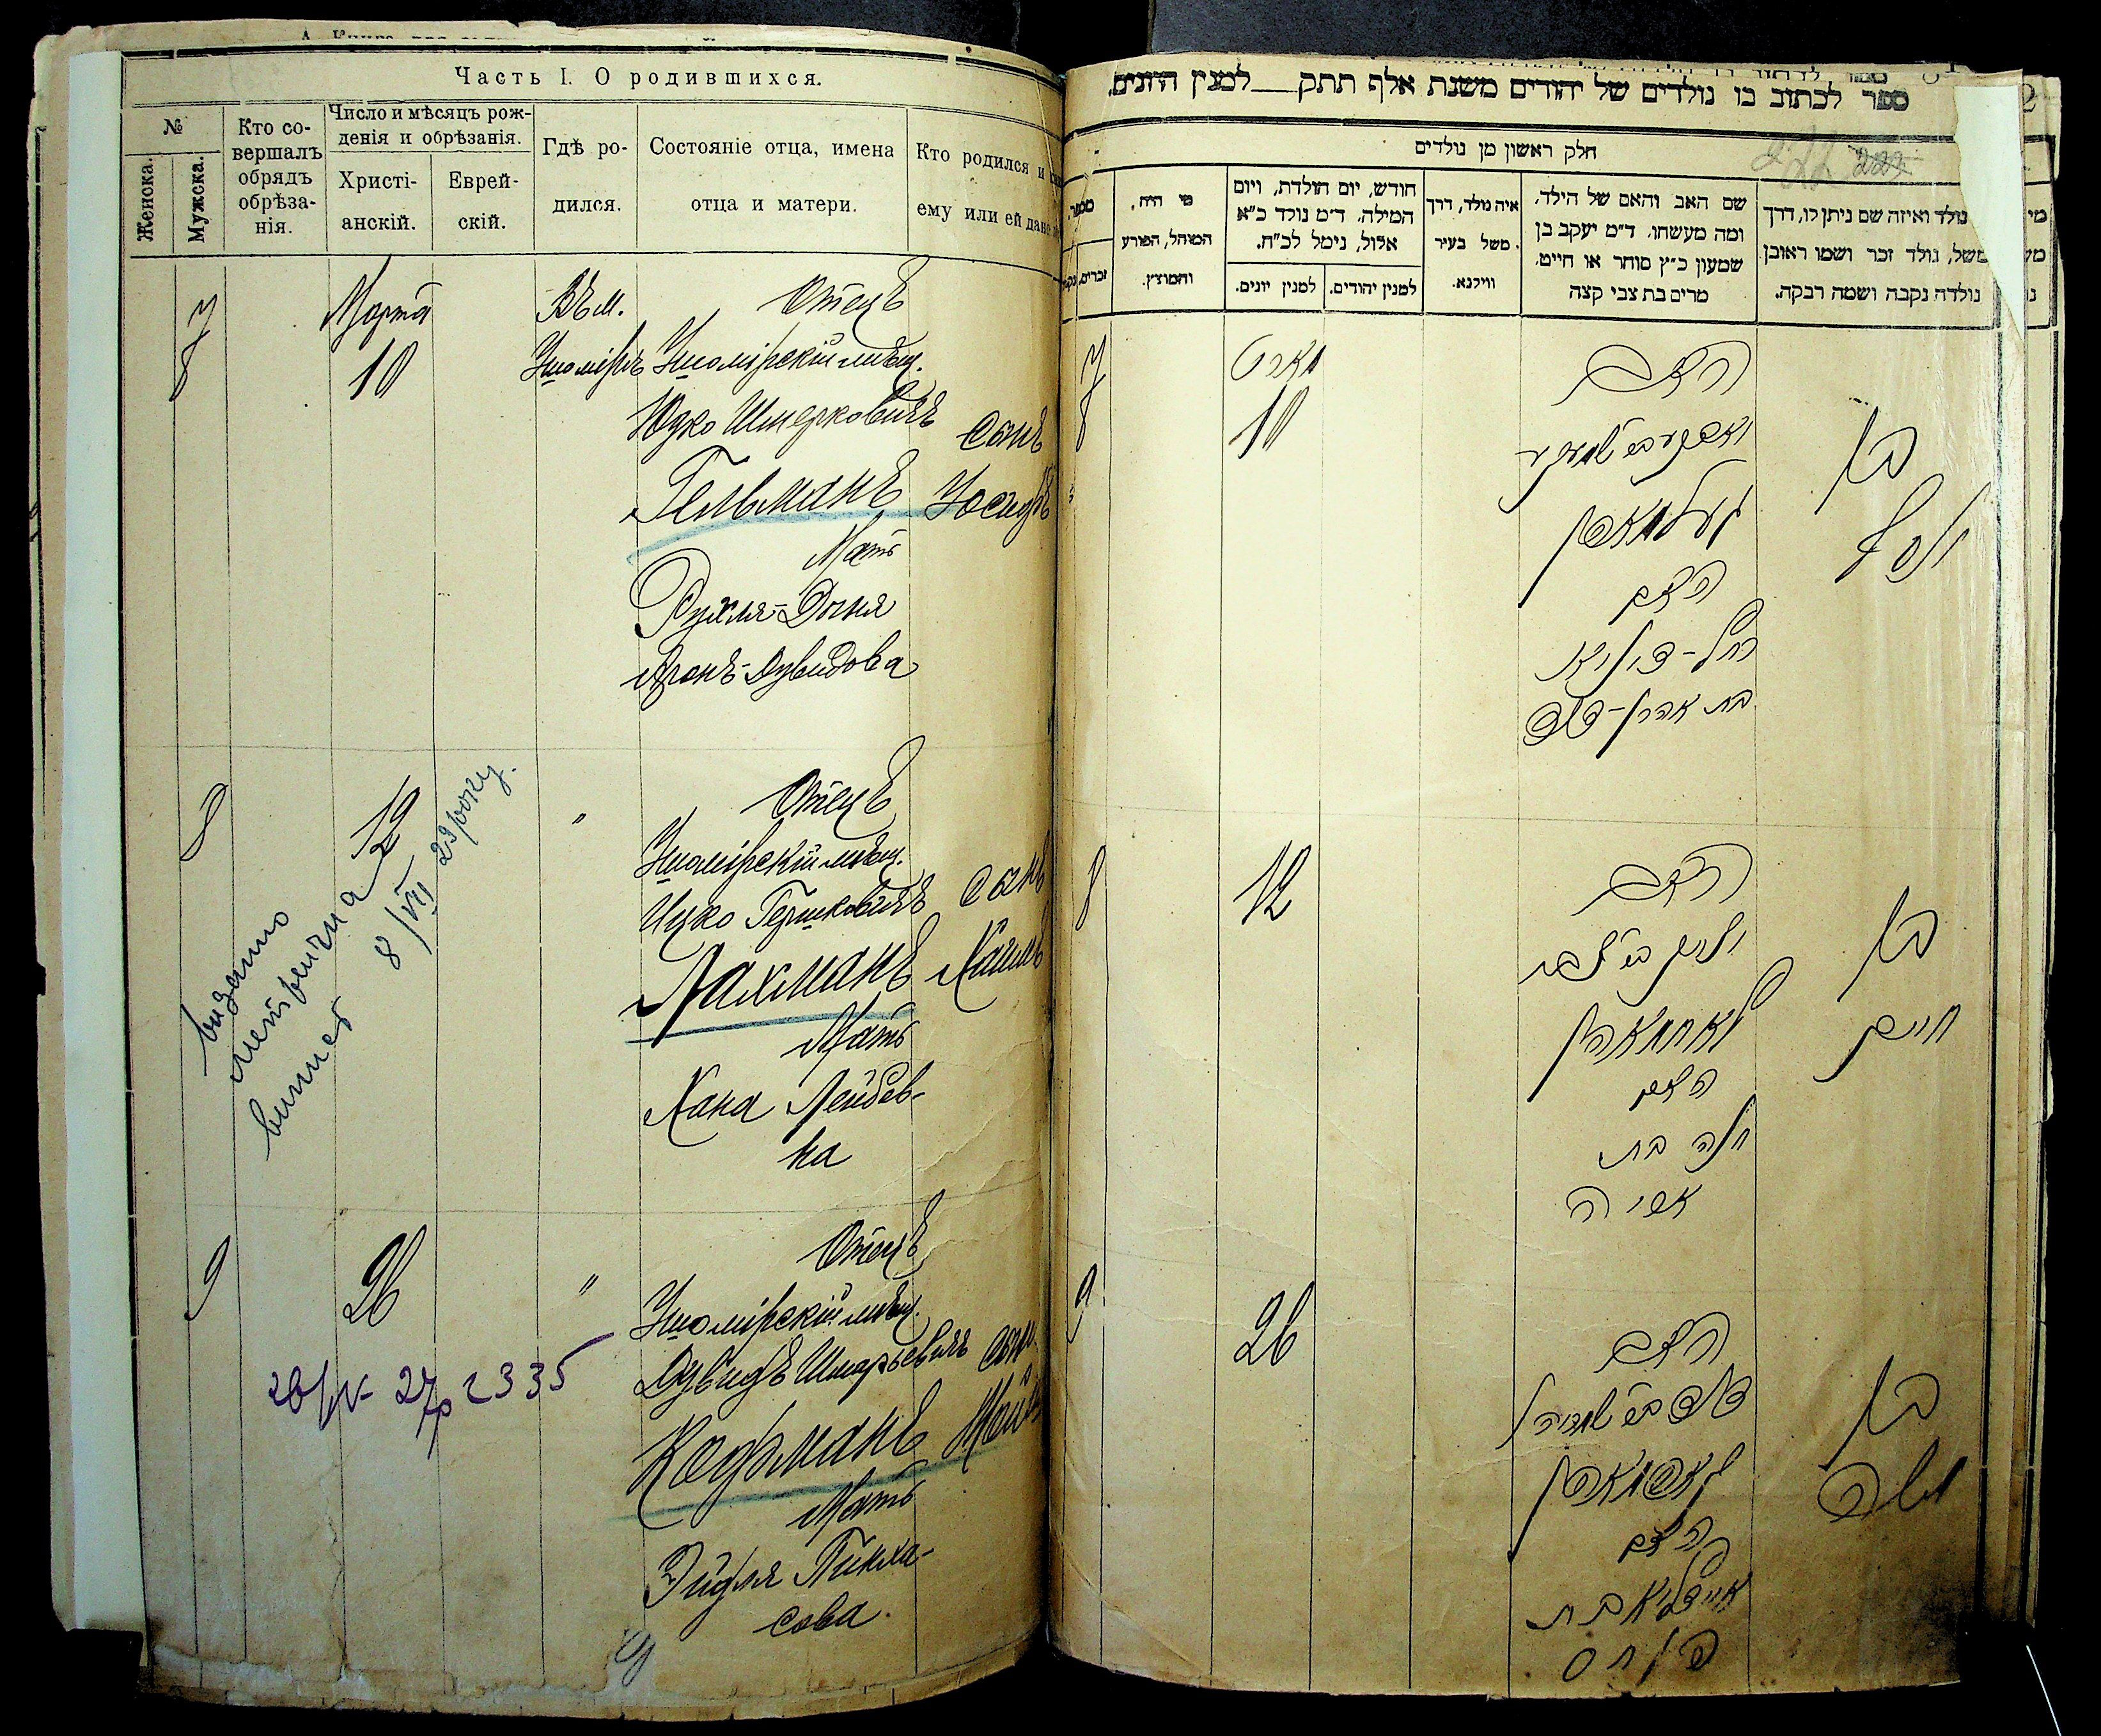 Часть I. О родившихся.
№
Женска.
Мужска.
Кто со-
вершалъ
обрядъ
обрѣза-
нія.
Число и мѣсяцъ рож-
денія и обрѣзанія.
Христі-
анскій.
Еврей-
скій.
Гдѣ ро-
дился.
Состояніе отца, имена
отца и матери.
Кто родился и
ему или ей дано
7
Марта
10
Въ м.
Ушомірѣ
Отецъ
Ушомірскій мѣщ.
Юдко Шмерковичъ
Гельманъ
Мать
Рухля-Доня
Аронъ-Дувидова
сынъ
Іосифъ
8
12
"
Отецъ
Ушомірскій мѣщ.
Ицко Гершковичъ
Лахманъ
Мать
Хана Лейбов-
на
сынъ
Хаимъ
видано
метрична
випись
8/VII 29 року.
9
26
"
Отецъ
Ушомірскій мѣщ.
Дувидъ Шмарьевичъ
Кофманъ
Мать
Эйдля Пинха-
сова.
сынъ
27р 2335
ספר לכתוב בו נולדים של יהודים משנת אלף תתק למנין היונים.
חלק ראשון מן נולדים
222
מספר
זכרים
מי היה,
המוהל, הפורע
והמוצץ.
חודש, יום הולדת, ויום
המילה. ד״מ נולד כ״א
אלול, נימל לכ״ח.
למנין יונים.
למנין יהודים.
איה נולד, דרך
משל בעיר
ווילנא.
שם האב והאם של הילד,
ומה מעשהו. ד״מ יעקב בן
שמעון כ״ץ סוחר או חייט.
מרים בת צבי קצה
נולד ואיזה שם ניתן לו, דרך
משל, נולד זכר ושמו ראובן
נולדה נקבה ושמה רבקה.
7
מארט
10
האב
געלמאן
האם
רחל-דוניא
בת אהרן-דוד
בן
יוסף
8
12
האב
יצחק ב״ר צבי
לאחמאן
האם
חנה בת
אריה
בן
חיים
9
26
האב
דוד ב״ר שמריהו
קאפמאן
האם
איידליא בת
פינחס
בן
משה